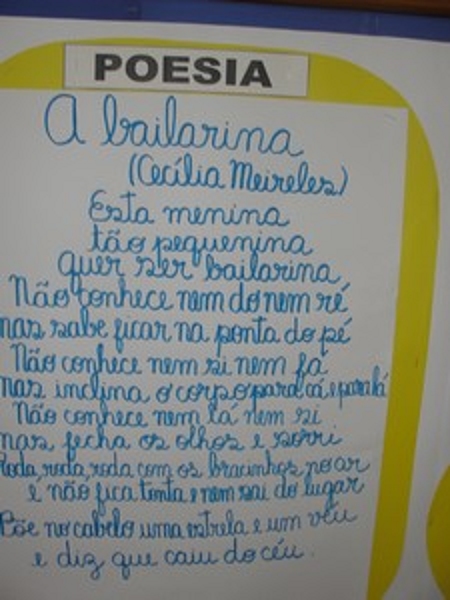 POESIA
A bailarina
(Cecília Meireles)
Esta menina
tão pequenina
quer ser bailarina,
Não conhece nem do nem ré
mas sabe ficar na ponta do pé
Não conhece nem si nem fá
mas inclina o corpo para cá, e para lá
Não conhece nem lá nem si
mas fecha os olhos e sorri
Roda, roda, roda com os bracinhos no ar
e não fica tonta e nem sai do lugar
Põe no cabelo uma estrela e um véu
e diz que caiu do céu.